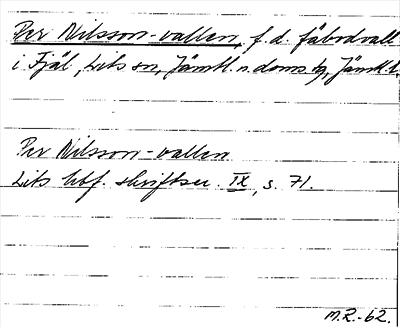 Per Nilsson-vallen, f.d. fäbodvall
i Fjäl, Lits sn, Jämtl. n. doms. tg, Jämtl. l.
Per Nilsson-vallen
Lits hbf. skriftser. IX, s. 71.
M.R.-62.